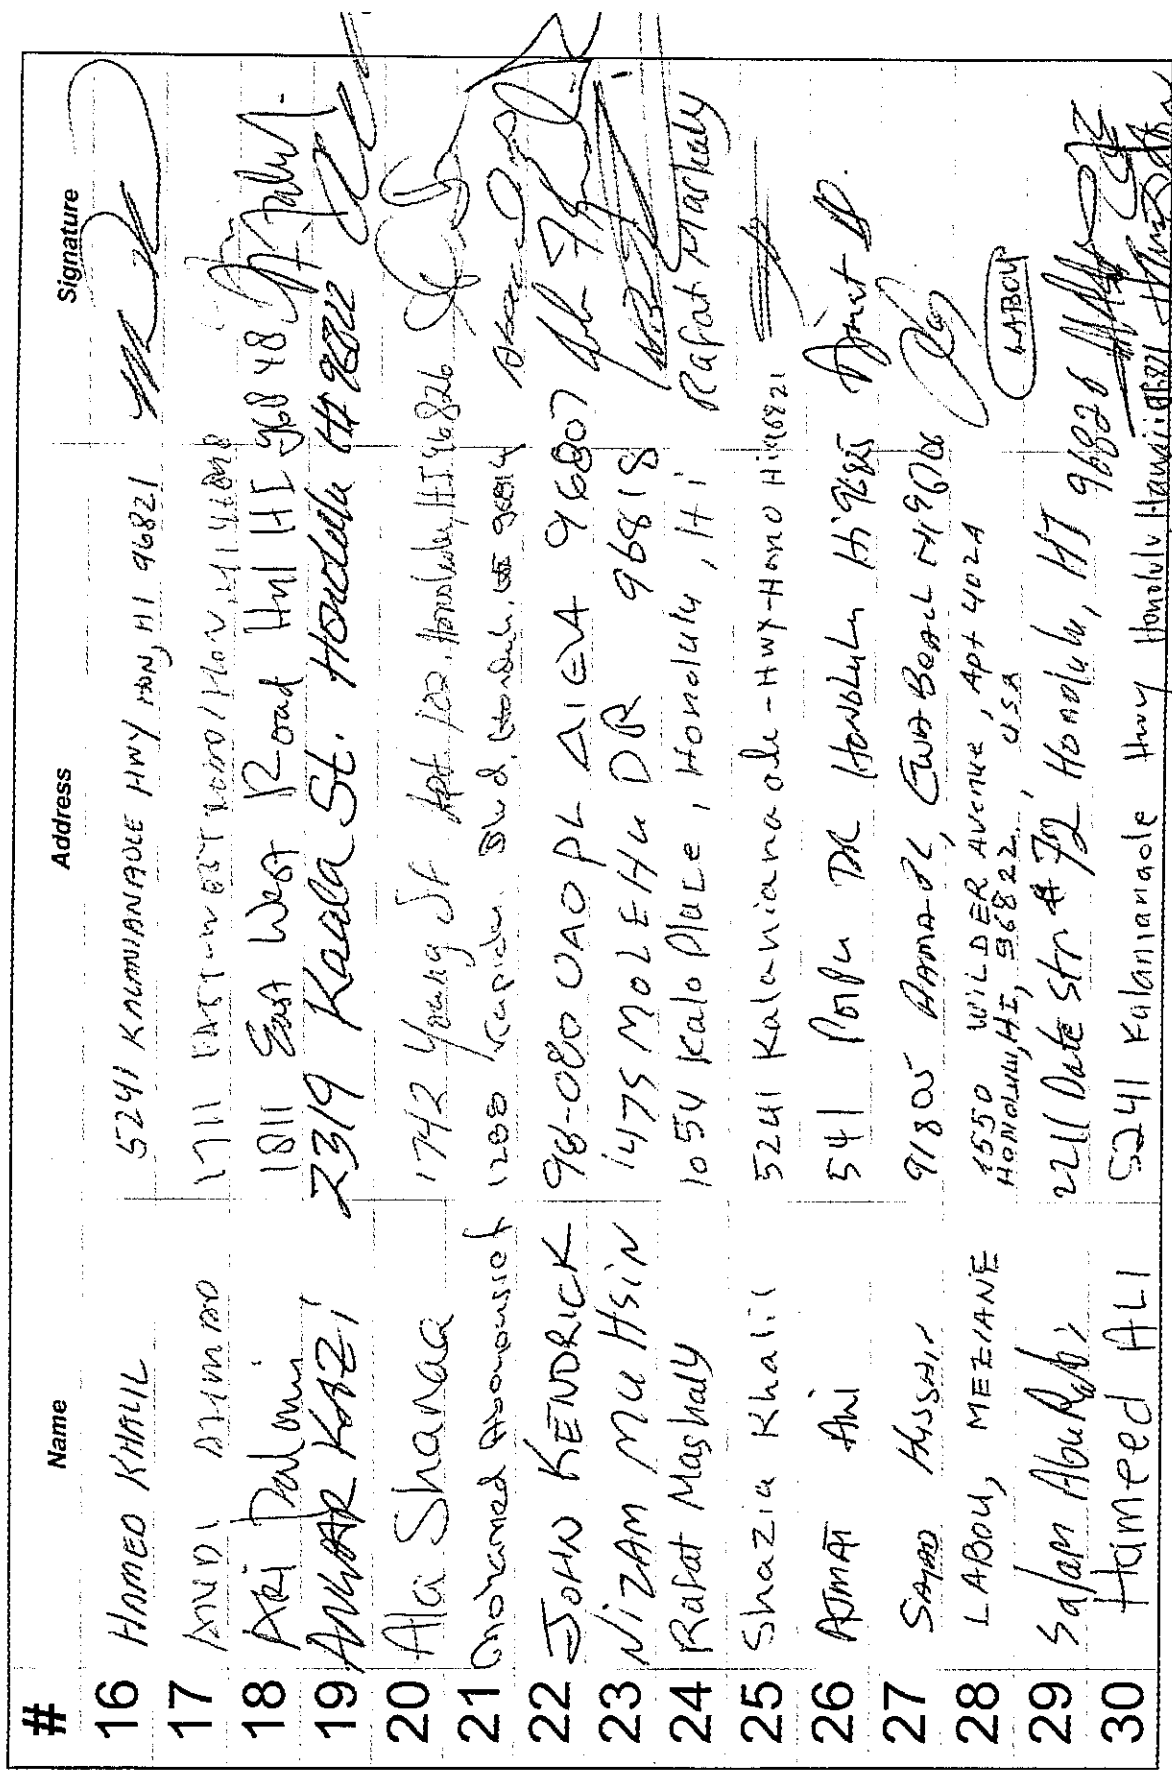 # Name Address Signature
16 HAMED KHALIL 5241 KALANIANAOLE HWY HON, HI 96821
17 ANDI
18 ARI 1811 East West Road Hnl HI 96848
19 ANWAR KAZI 2319 Kaala St. Honolulu HI 96822
20 Ala Shanaa 1742 Young St Apt 102, Honolulu, HI 96826
21 Mohamed 1288 Kapiolani Blvd, Honolulu, 96814
22 JOHN KENDRICK 98-080 UAO PL AIEA 96807
23 NIZAM MUHSIN 1475 MOLEHU DR 96818
24 Rafat Mashaly 1054 Kalo Place, Honolulu, Hi Rafat Mashaly
25 Shazia Khalil 5241 Kalanianaole-Hwy-Hono Hi 96821
26 AJMAT 541 DR HONOLULU Hi 96825
27 91805 PL, EWA BEACH Hi 96706
28 LABOU, MEZIANE 1550 WILDER Avenue, Apt 402A
HONOLULU, HI, 96822. USA LABOU
29 Salam 2211 Date Str # Honolulu, HI 96826
30 Hameed ALI 5241 Kalanianaole Hwy Honolulu, Hawaii 96821